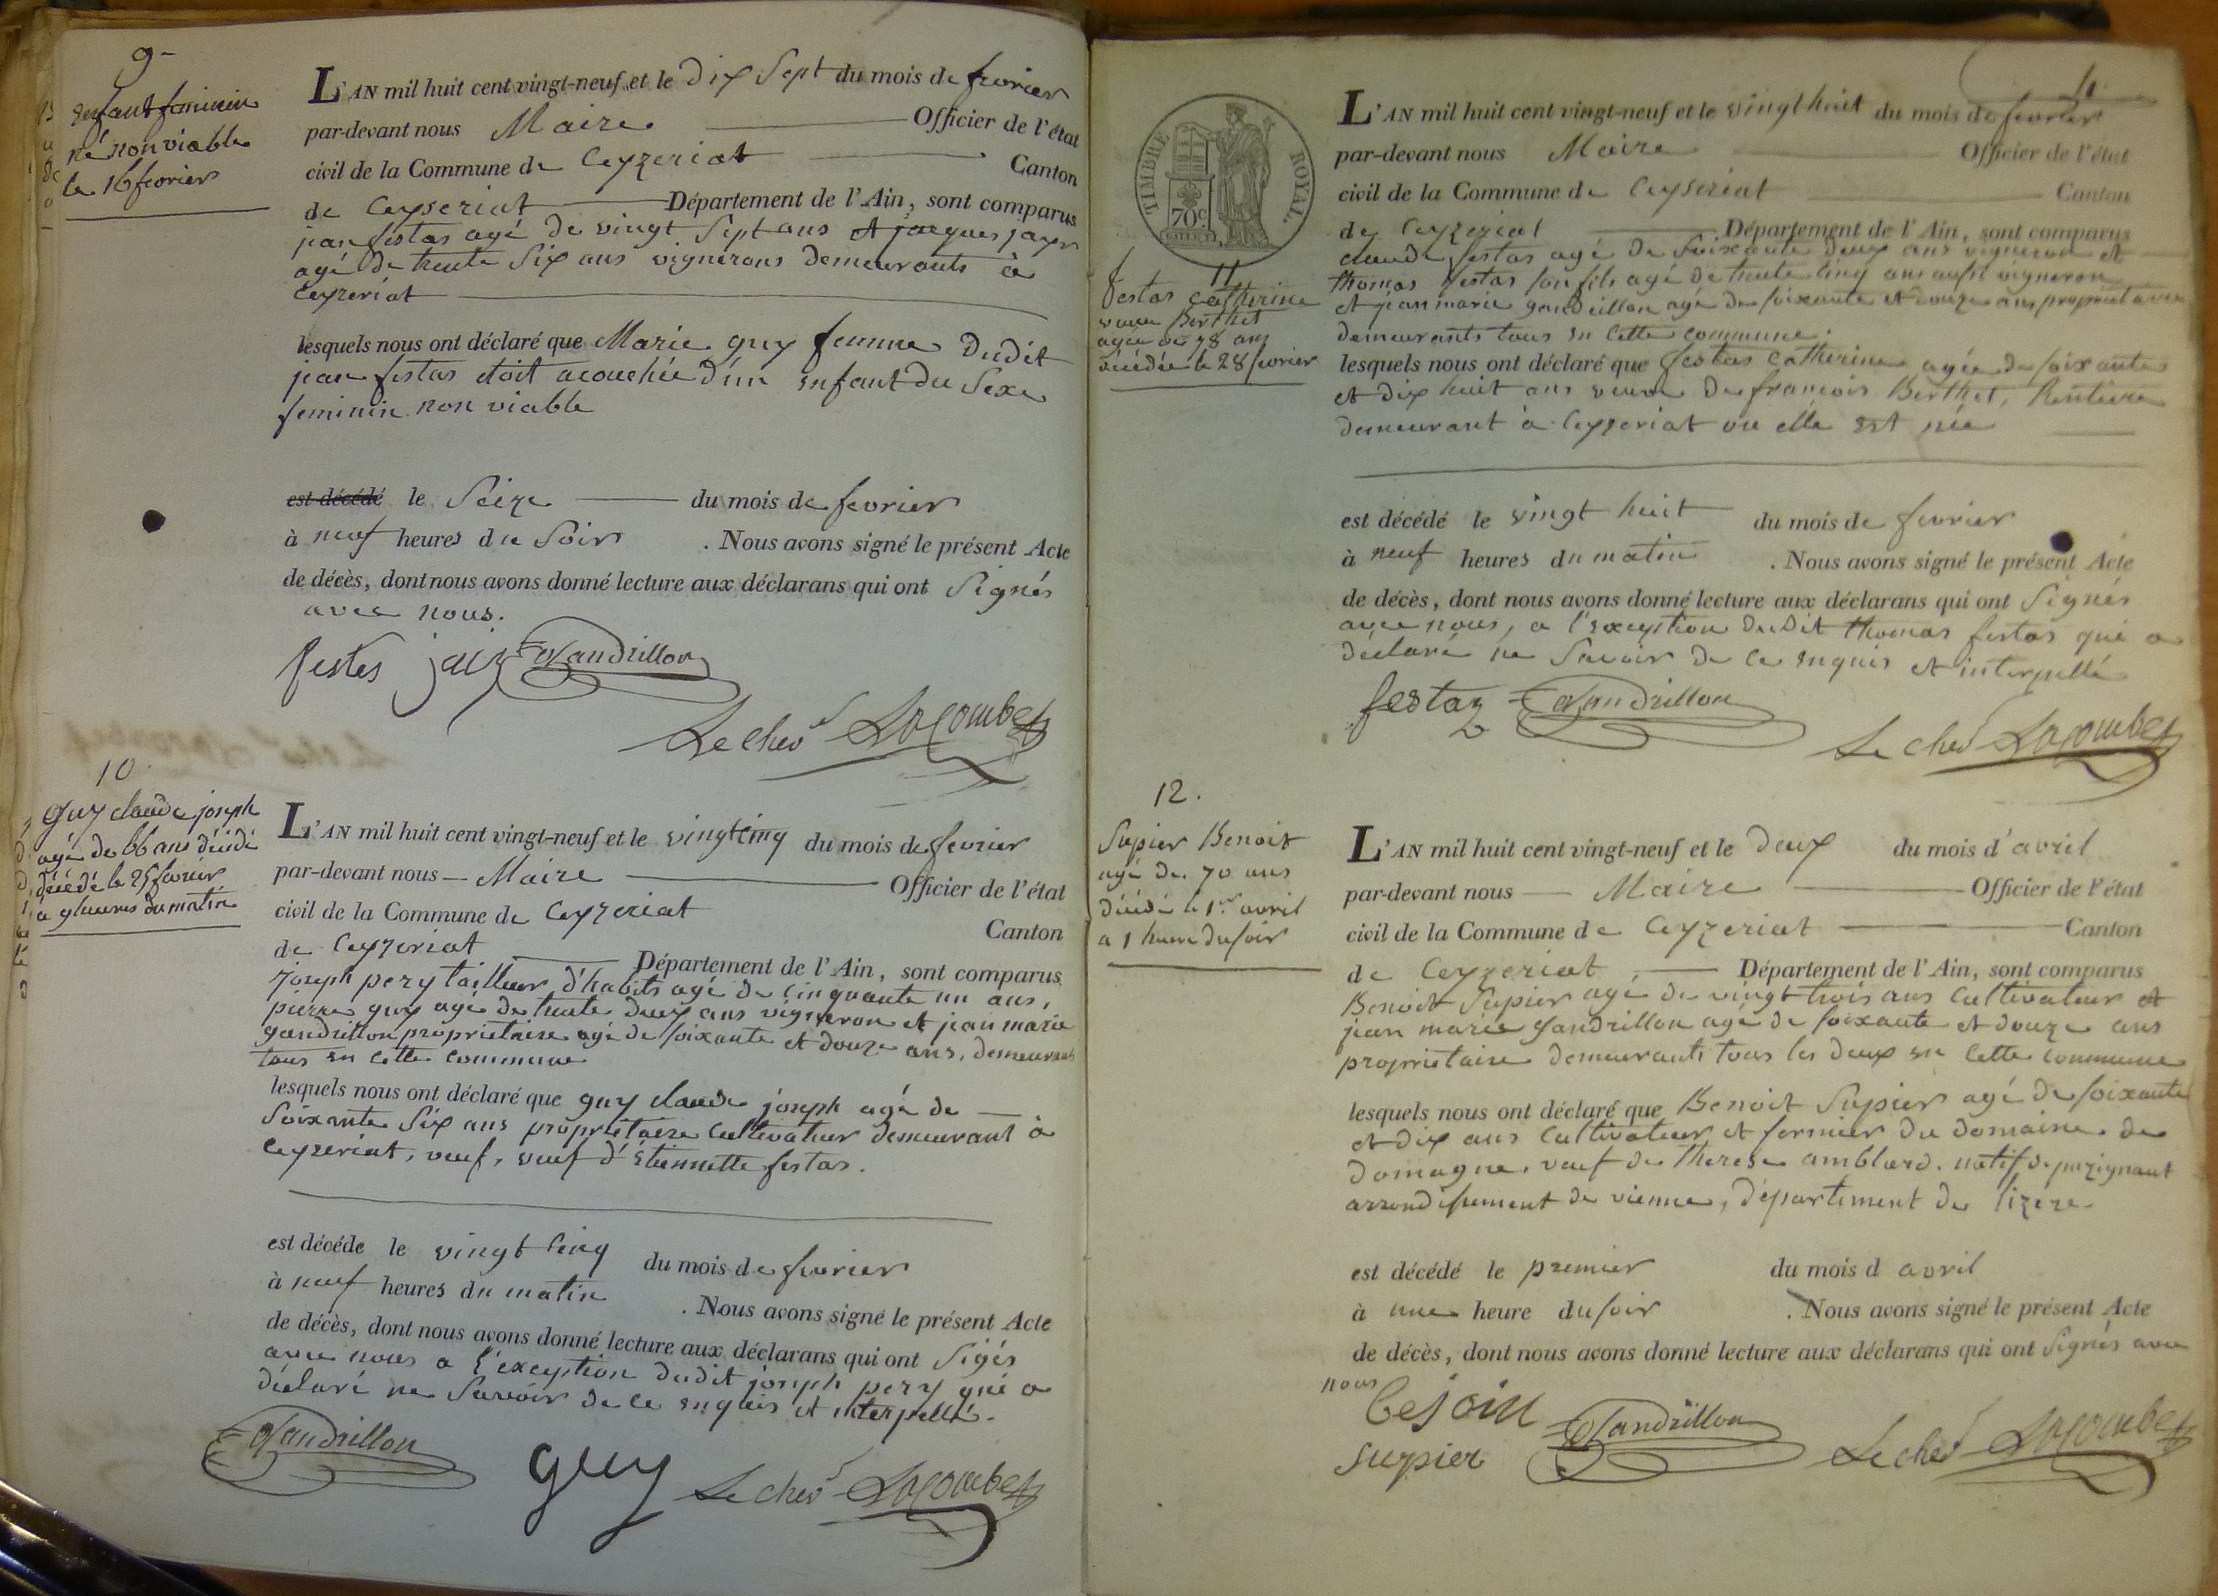 9
Enfant feminin
né non viable
le 16 fevrier
L'AN mil huit cent vingt-neuf et le dix Sept du mois de fevrier
par-devant nous Maire Officier de l'état
civil de la Commune de Ceyzeriat Canton
de Ceyseriat Département de l'Ain, sont comparus
jean festas agé de vingt Sept ans et jacques jayr
agé de trente Six ans vignerons demeurants à
Ceyzeriat
lesquels nous ont déclaré que Marie guy femme dudit
jean festas etoit acouchée d'un enfant du Sexe
feminin non viable
est décédé le Seize du mois de fevrier
à neuf heures du Soir . Nous avons signé le présent Acte
de décès, dont nous avons donné lecture aux déclarans qui ont Signés
avec nous.
festes jaiz Gandrillon
Le chev Lacombe
10
guy claude joseph
agé de 66 ans décédé
décédé le 25 fevrier
a 9 heures du matin
L'AN mil huit cent vingt-neuf et le vingt cinq du mois de fevrier
par-devant nous Maire Officier de l'état
civil de la Commune de Ceyzeriat
Canton
de Ceyzeriat Département de l'Ain, sont comparus
joseph pery tailleur d'habits agé de cinquante un ans,
pierre guy agé de trente deux ans vigneron et jean marie
gandrillon proprietaire agé de soixante et douze ans, demeurants
tous en cette commune
lesquels nous ont déclaré que guy claude joseph agé de
Soixante Six ans proprietaire cultivateur demeurant à
Ceyzeriat, veuf, veuf d'étiennette festas.
est décéde le vingt cinq du mois de fevrier
à neuf heures du matin . Nous avons signé le présent Acte
de décès, dont nous avons donné lecture aux déclarans qui ont Sigés
avec nous a l'exception dudit joseph pery qui a
déclaré ne Savoir de ce enquis et interpellé.
Gandrillon guy Le chev Lacombe
4
TIMBRE ROYAL
70c
11
festas catherine
veuve Berthet
agée de 78 ans
décédée le 28 fevrier
L'AN mil huit cent vingt-neuf et le vingt huit du mois de fevrier
par-devant nous Maire Officier de l'état
civil de la Commune de Ceyseriat Canton
de Ceyzeriat Département de l'Ain, sont comparus
claude festas agé de Soixante deux ans vigneron et
thomas festas son fils agé de trente cinq ans aussi vigneron
et jean marie gandrillon agé de soixante et douze ans proprietaire
demeurants tous en cette commune.
lesquels nous ont déclaré que festas catherine agée de soixante
et dix huit ans veuve de françois Berthet, Rentiere
demeurant à Ceyzeriat ou elle est née
est décédé le vingt huit du mois de fevrier
à neuf heures du matin . Nous avons signé le présent Acte
de décès, dont nous avons donné lecture aux déclarans qui ont Signés
avec nous, a l'exception dudit thomas festas qui a
déclaré ne Savoir de ce enquis et interpellé
festaz Gandrillon
Le chev Lacombe
12.
Supier Benoit
agé de 70 ans
décédé le 1er avril
a 1 heure du soir
L'AN mil huit cent vingt-neuf et le deux du mois d'avril
par-devant nous Maire Officier de l'état
civil de la Commune de Ceyzeriat Canton
de Ceyzeriat Département de l'Ain, sont comparus
Benoit Supier agé de vingt trois ans Cultivateur et
jean marie gandrillon agé de soixante et douze ans
proprietaire demeurants tous les deux en cette commune
lesquels nous ont déclaré que Benoit Supier agé de soixante
et dix ans Cultivateur et fermier du domaine de
domagne, veuf de therese amblard. natif de
arrondissement de vienne, département de lizere.
est décédé le premier du mois d avril
à une heure du soir . Nous avons signé le présent Acte
de décès, dont nous avons donné lecture aux déclarans qui ont Signés avec
nous
supier Gandrillon Le chev Lacombe